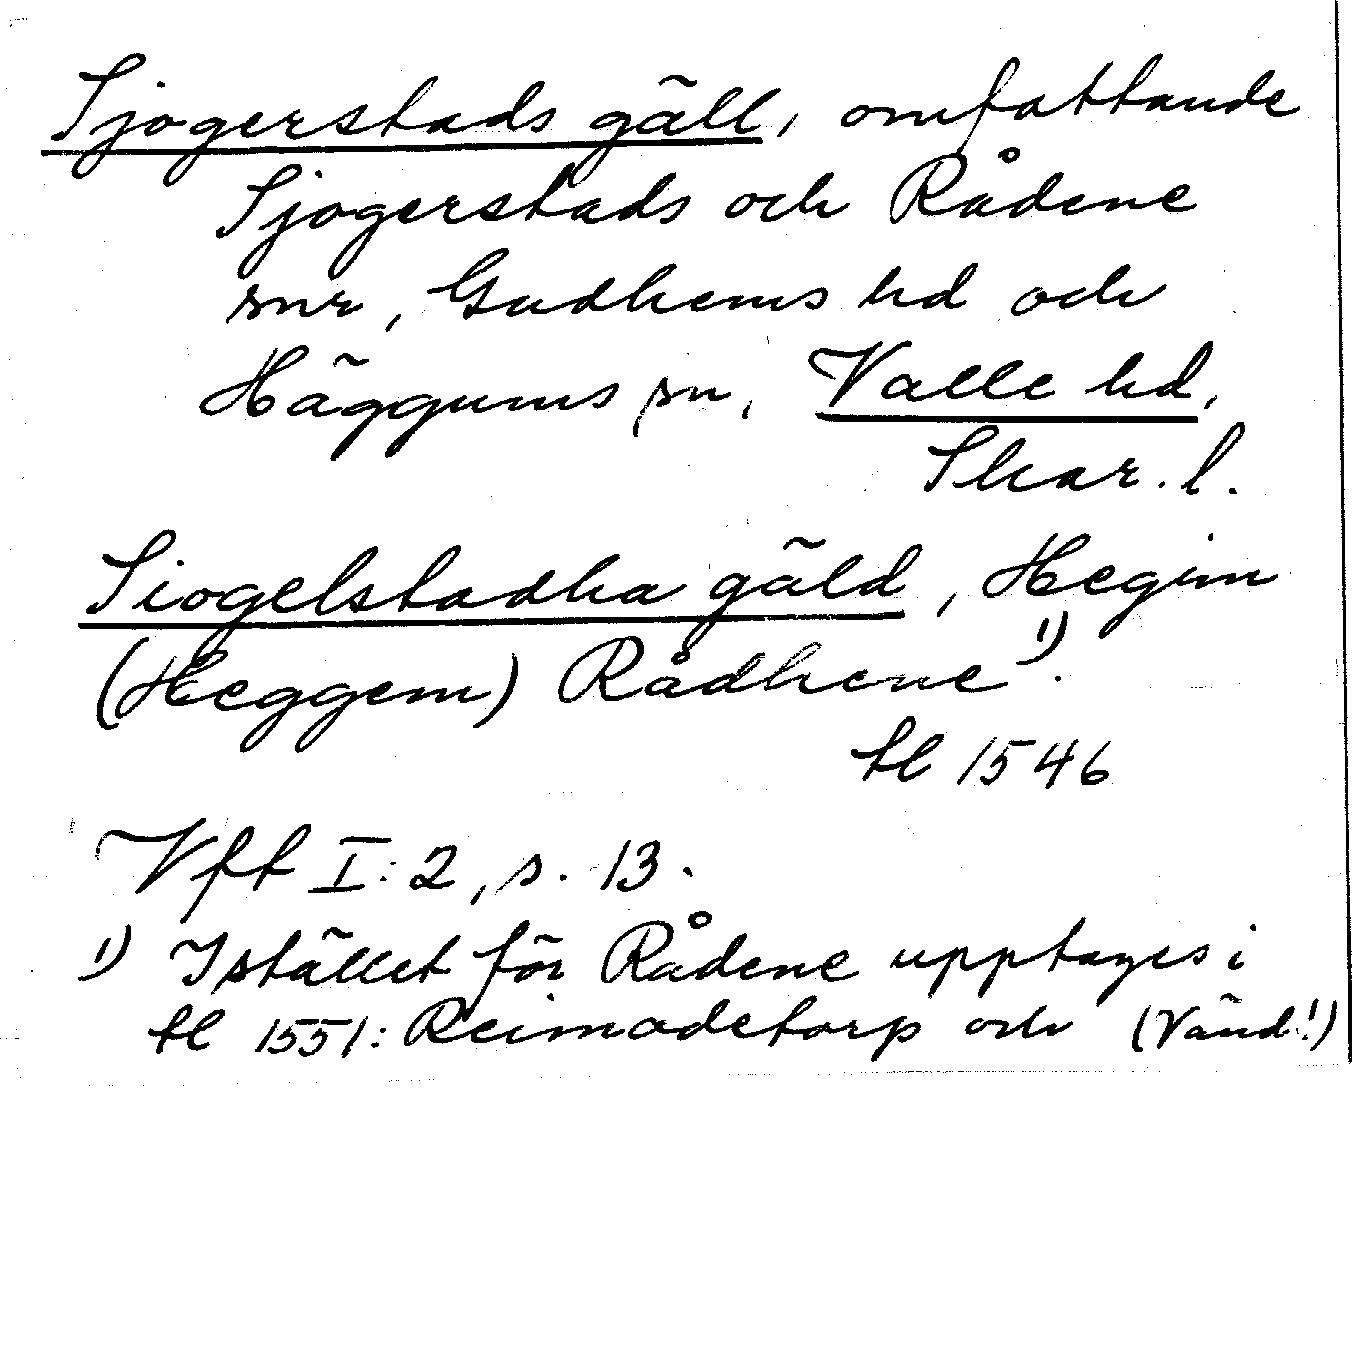 Sjogerstads gäll, omfattande
Sjogerstads och Rådene
snr, Gudhems hd och
Häggums sn, Valle hd,
Skar. l.
Siogelstadha gäld, Hegim
(Heggem) Rådhene 1).
tl 1546
Vft I:2, s. 13.
1) Istället för Rådene upptages i
tl 1551: Reimodetorp och (Vänd!)